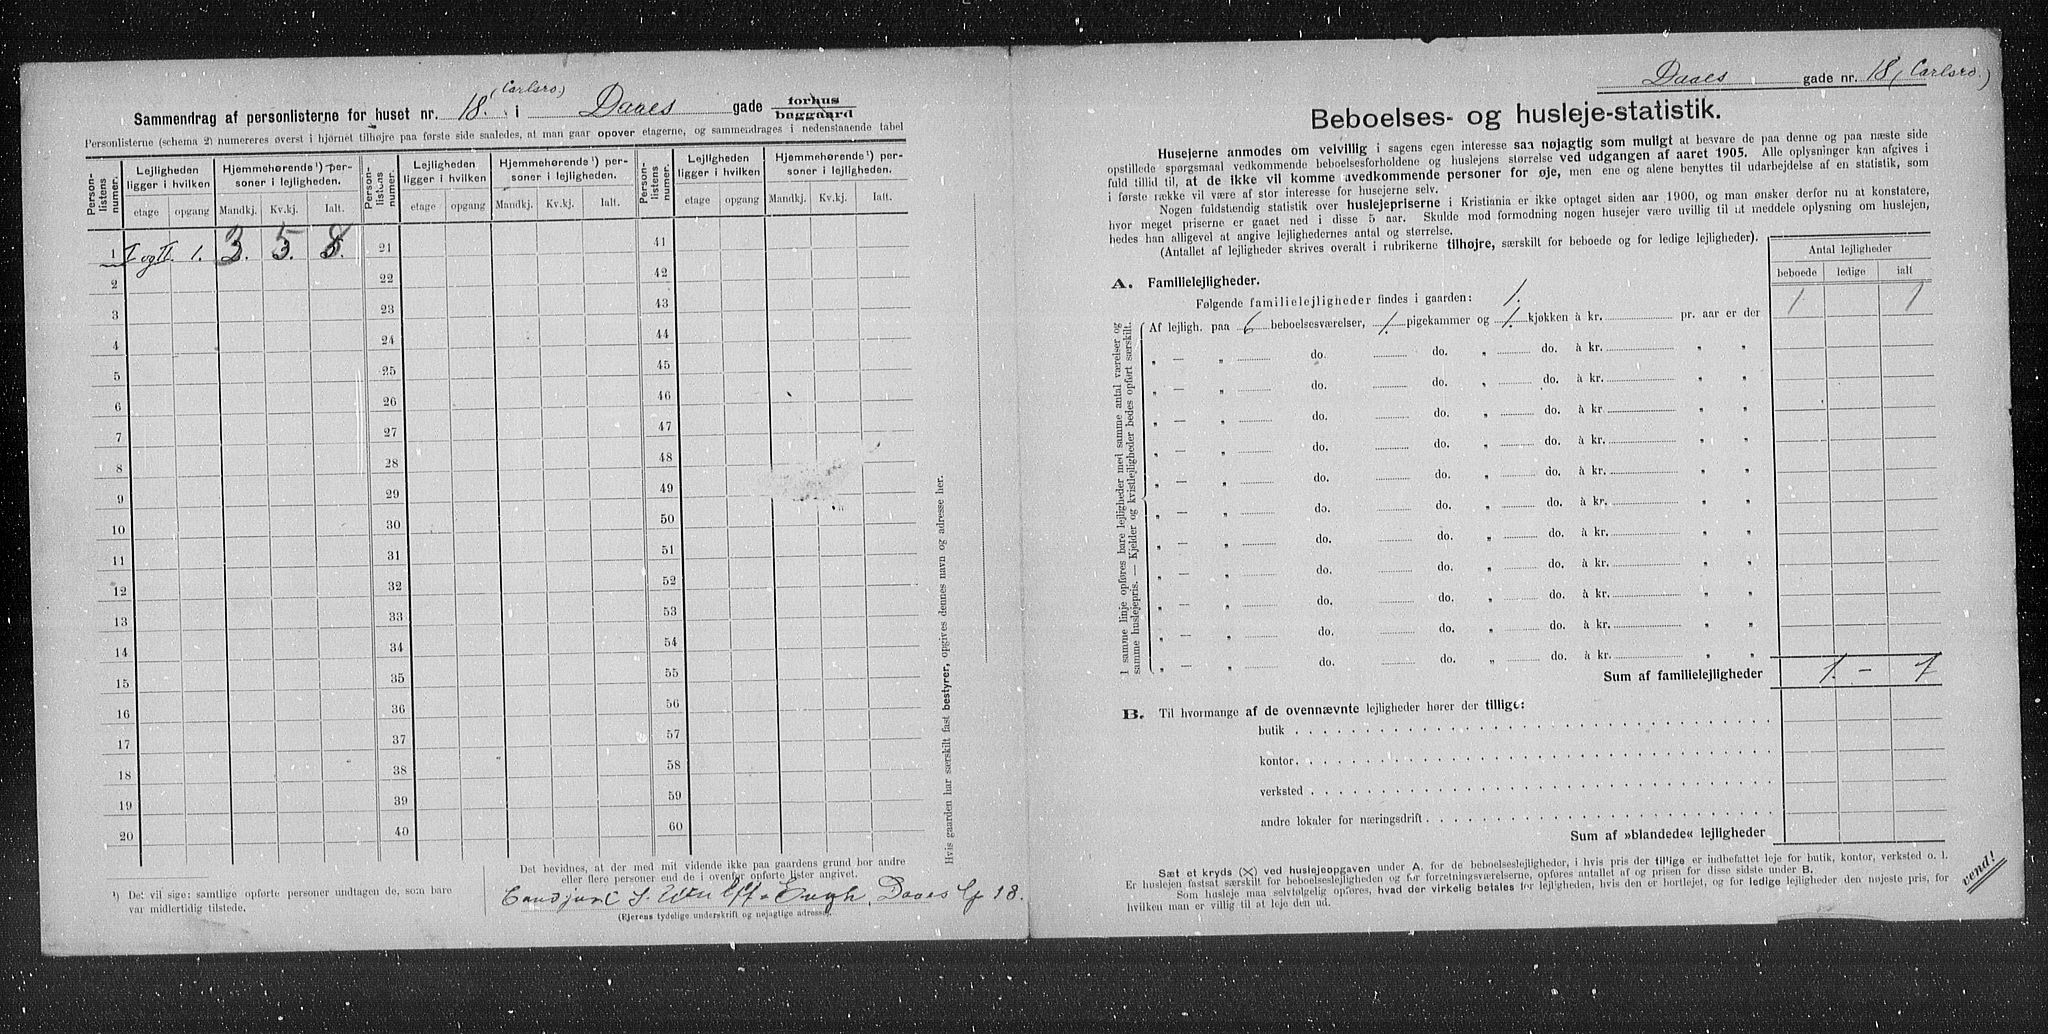 (Carlsro)
Sammendrag af personlisterne for huset nr. 18. i Daaes gade forhus
baggaard
Personlisterne (schema 2) numereres øverst i hjørnet tilhøjre paa første side saaledes, at man gaar opover etagerne, og sammendrages i nedenstaaende tabel
Person-listens nummer. Lejligheden ligger i hvilken Hjemmehørende ¹) per-soner i lejligheden. Person-listens nummer. Lejligheden ligger i hvilken Hjemmehørende ¹) per-soner i lejligheden. Person-listens nummer. Lejligheden ligger i hvilken Hjemmehørende ¹) per-soner i lejligheden.
etage opgang Mandkj. Kv.kj. Ialt. etage opgang Mandkj. Kv.kj. Ialt. etage opgang Mandkj. Kv.kj. Ialt.
1 I og II. 1. 3. 5. 8. 21 41
2 22 42
3 23 43
4 24 44
5 25 45
6 26 46
7 27 47
8 28 48
9 29 49
10 30 50
11 31 51
12 32 52
13 33 53
14 34 54
15 35 55
16 36 56
17 37 57
18 38 58
19 39 59
20 40 60
Hvis gaarden har særskilt fast bestyrer, opgives dennes navn og adresse her.
¹) De: vil sige: samtlige opførte personer undtagen de, som bare
var midlertidig tilstede.
Det bevidnes, at der med mit vidende ikke paa gaardens grund bor andre
eller flere personer end de i ovenfor opførte lister angivet.
Daaes g. 18.
(Ejerens tydelige underskrift og nøjagtige adresse).
Daaes gade nr. 18 (Carlsro.)
Beboelses- og husleje-statistik.
Husejerne anmodes om velvillig i sagens egen interesse saa nøjagtig som muligt at besvare de paa denne og paa næste side
opstillede spørgsmaal vedkommende beboelsesforholdene og huslejens størrelse ved udgangen af aaret 1905. Alle oplysninger kan afgives i
fuld tillid til, at de ikke vil komme uvedkommende personer for øje, men ene og alene benyttes til udarbejdelse af en statistik, som
i første række vil være af stor interesse for husejerne selv.
Nogen fuldstændig statistik over huslejepriserne i Kristiania er ikke optaget siden aar 1900, og man ønsker derfor nu at konstatere,
hvor meget priserne er gaaet ned i disse 5 aar. Skulde mod formodning nogen husejer være uvillig til at meddele oplysning om huslejen,
bedes han alligevel at angive lejlighedernes antal og størrelse.
(Antallet af lejligheder skrives overalt i rubrikerne tilhøjre, særskilt for beboede og for ledige lejligheder).
Antal lejligheder
beboede ledige ialt
A. Familielejligheder.
Følgende familielejligheder findes i gaarden: 1.
Af lejligh. paa 6 beboelsesværelser, 1. pigekammer og 1. kjøkken à kr. pr. aar er der 1 1
„ — „ do. do. „ do. à kr. „ „
„ — „ do. do. „ do. à kr. „ „
„ — „ do. do. „ do. à kr „ „
„ — „ do. do. „ do. à kr. „ „
„ — „ do. do. „ do. à kr. „ „
„ — „ do. do. „ do. à kr. „ „
„ — „ do. do. „ do. à kr. „ „
„ — „ do. do. „ do. à kr. „ „
„ — „ do. do. „ do. à kr. „ „
„ — „ do. do. „ do. à kr. „ „
„ — „ do. do. „ do. à kr. „ „
I samme linje opføres bare lejligheder med samme antal værelser og
samme huslejepris. — Kjelder og kvistlejligheder bedes opført særskilt.
Sum af familielejligheder 1. – 1
B. Til hvormange af de ovennævnte lejligheder hører der tillige:
butik
kontor
verksted
andre lokaler for næringsdrift
Sum af »blandede« lejligheder
Sæt et kryds (×) ved huslejeopgaven under A. for de beboelseslejligheder, i hvis pris der tillige er indbefattet leje for butik, kontor, verksted o. l.
Er huslejen fastsat særskilt for beboelseslejligheden og for forretningsværelserne, opføres antallet af og prisen for disse sidste under B.
Som husleje maa selvtølgelig opføres, hvad der virkelig betales for lejligheden, hvis den er bortlejet, og for ledige lejligheder den nøjeste pris, for
hvilken man er villig til at leje den ud.
vend!